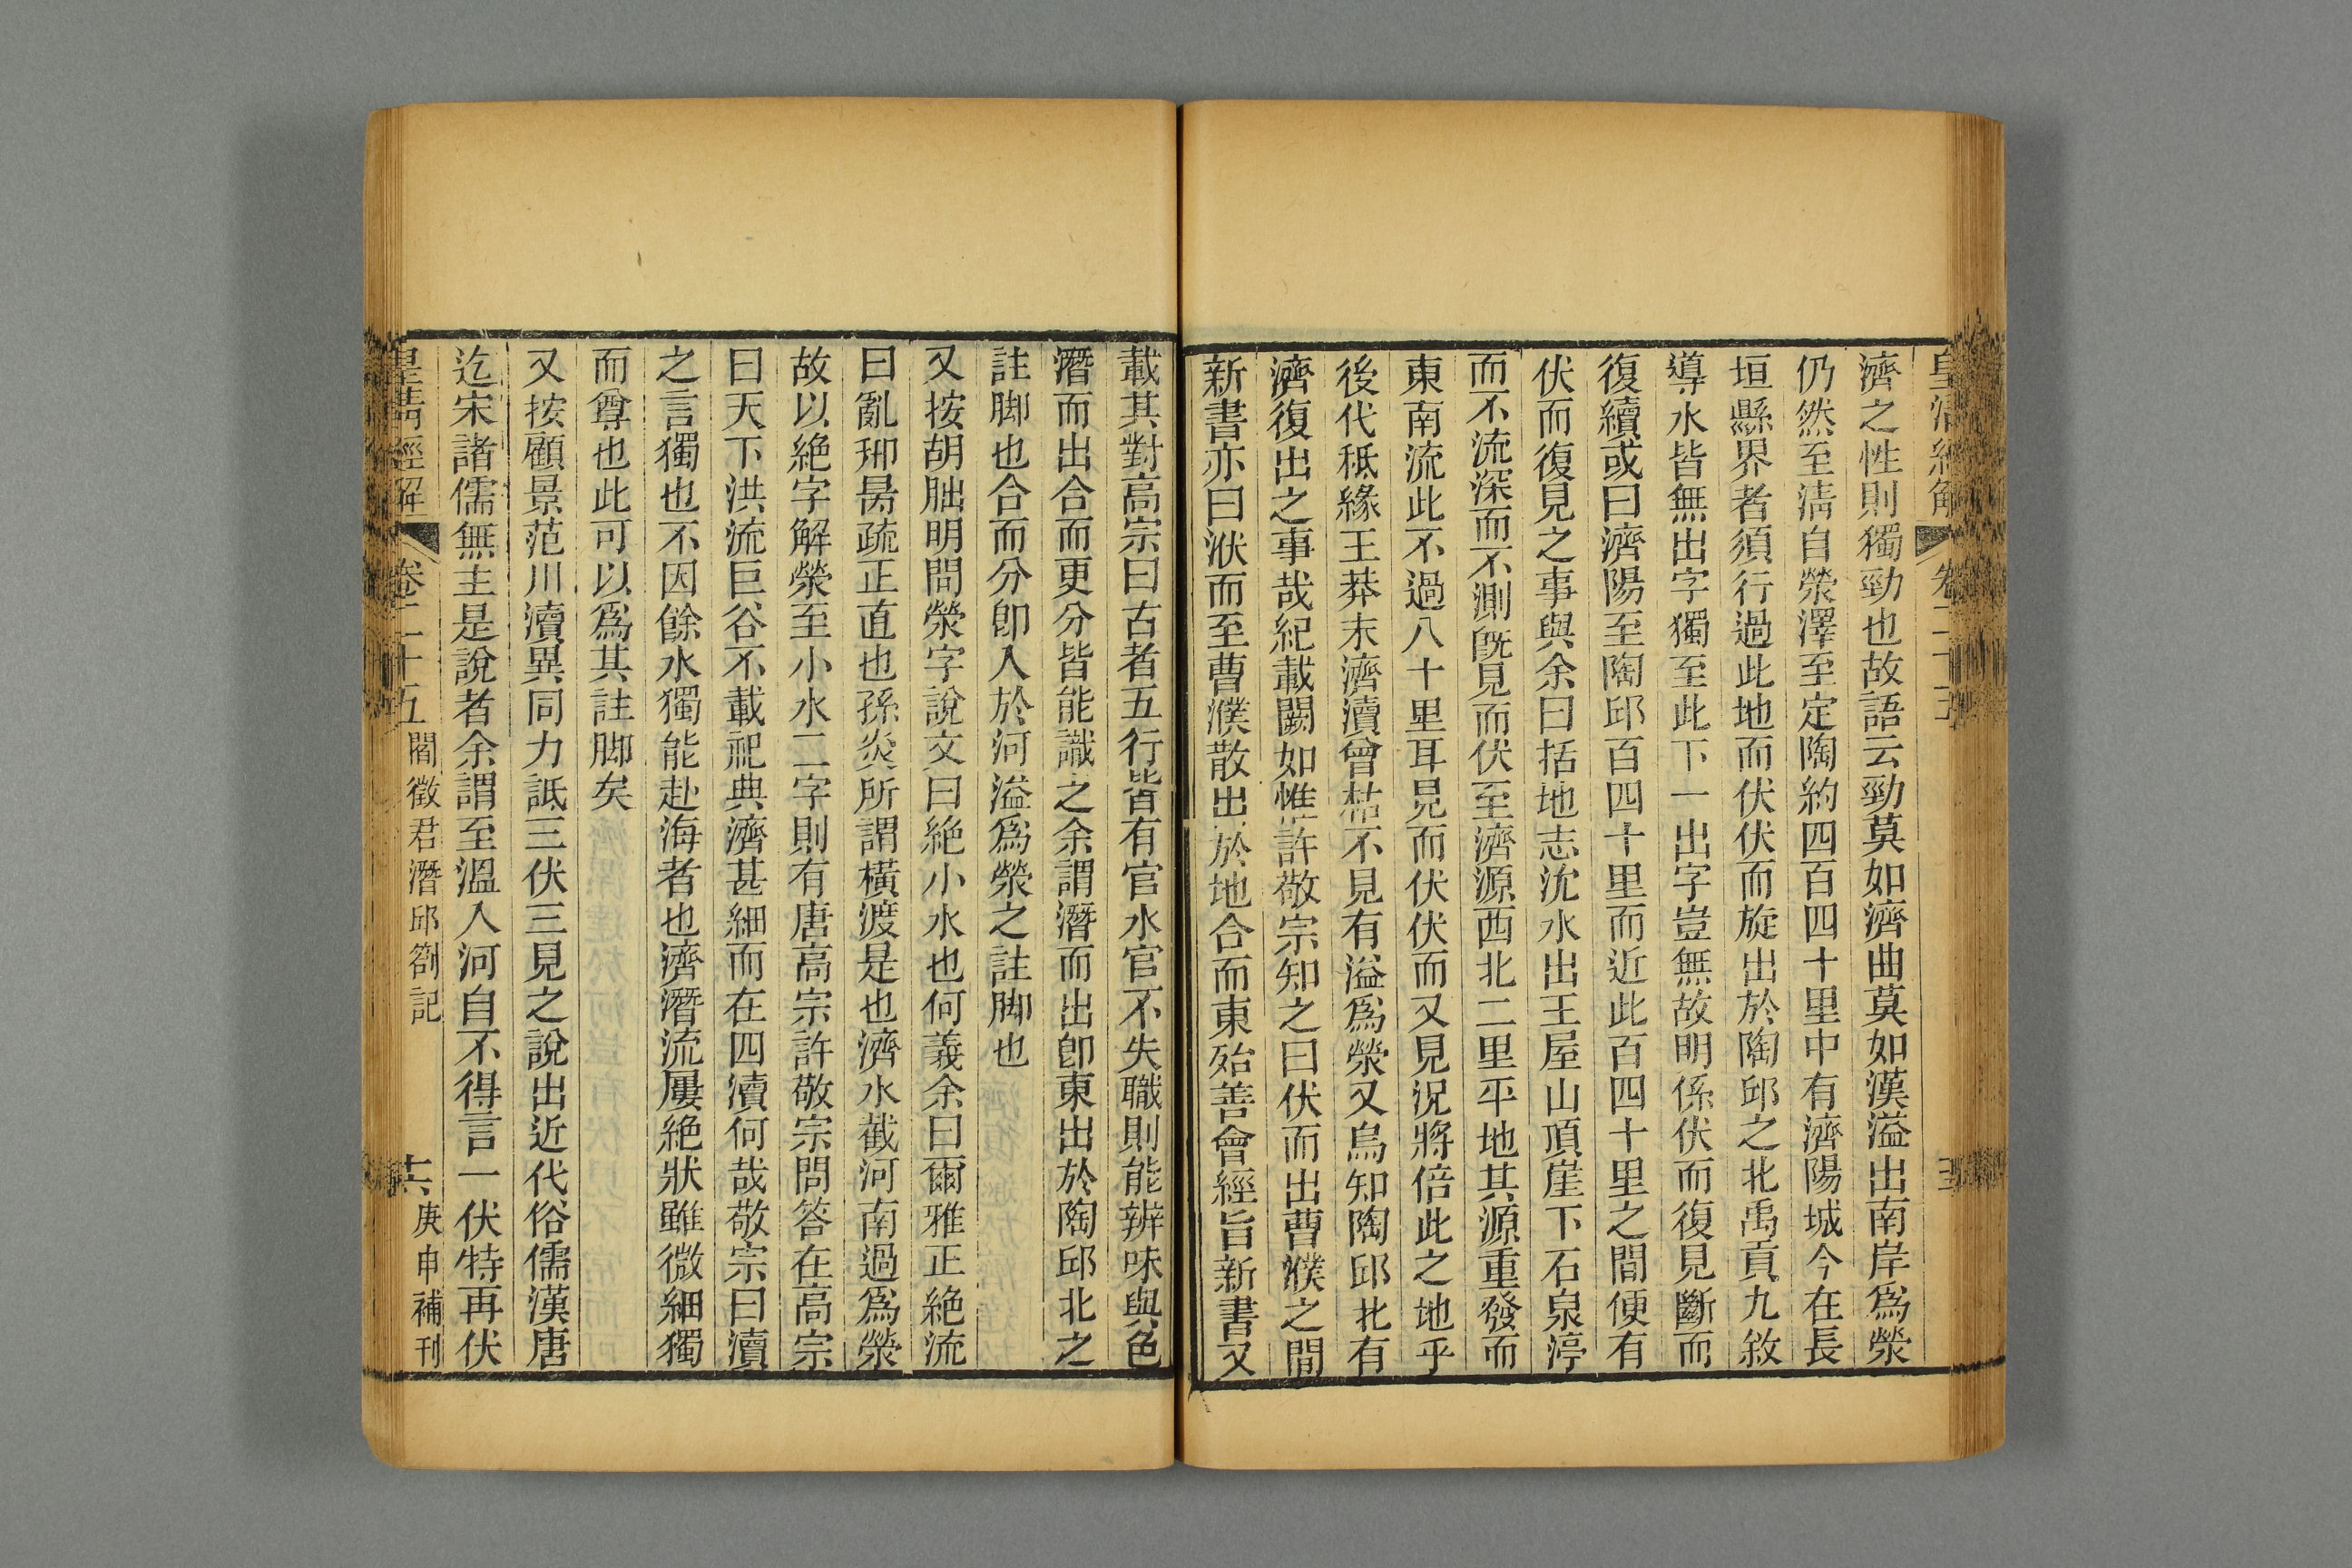 皇清經解 卷二十五
濟之性則獨勁也故語云勁莫如濟曲莫如漢溢出南岸爲滎
仍然至淸自滎澤至定陶約四百四十里中有濟陽城今在長
垣縣界者須行過此地而伏伏而旋出於陶邱之北禹貢九敘
導水皆無出字獨至此下一出字豈無故明係伏而復見斷而
復續或曰濟陽至陶邱百四十里而近此百四十里之間便有
伏而復見之事與余曰括地志沇水出王屋山頂崖下石泉渟
而不流深而不測旣見而伏至濟源西北二里平地其源重發而
東南流此不過八十里耳見而伏伏而又見況將倍此之地乎
後代秪緣王莽末濟瀆曾枯不見有溢爲滎又烏知陶邱北有
濟復出之事哉紀載闕如惟許敬宗知之曰伏而出曹濮之間
新書亦曰洑而至曹濮散出於地合而東殆善會經旨新書又
載其對高宗曰古者五行皆有官水官不失職則能辨味與色
潛而出合而更分皆能識之余謂潛而出卽東出於陶邱北之
註脚也合而分卽入於河溢爲滎之註脚也
又按胡朏明問滎字說文曰絶小水也何義余曰爾雅正絶流
曰亂郉昺疏正直也孫炎所謂橫渡是也濟水截河南過爲滎
故以絶字解滎至小水二字則有唐高宗許敬宗問答在高宗
曰天下洪流巨谷不載祀典濟甚細而在四瀆何哉敬宗曰瀆
之言獨也不因餘水獨能赴海者也濟潛流屢絶狀雖微細獨
而尊也此可以爲其註脚矣
又按顧景范川瀆異同力詆三伏三見之說出近代俗儒漢唐
迄宋諸儒無主是說者余謂至溫入河自不得言一伏特再伏
皇清經解 卷二十五 閻徵君潛邱劄記 六 庚申補刊